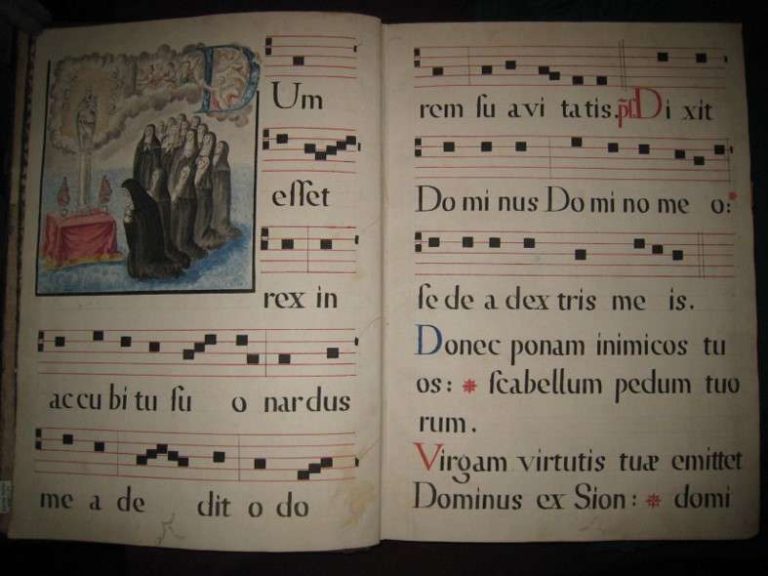 DUm
esſet
rex in
ac cu bi tu ſu o nar dus
me a de dit o do
rem ſu a vi ta tis. pſ. Di xit
Do mi nus Do mi no me o: *
ſe de a dex tris me is.
Donec ponam inimicos tu
os: * ſcabellum pedum tuo
rum.
Virgam virtutis tuæ emittet
Dominus ex Sion: * domi